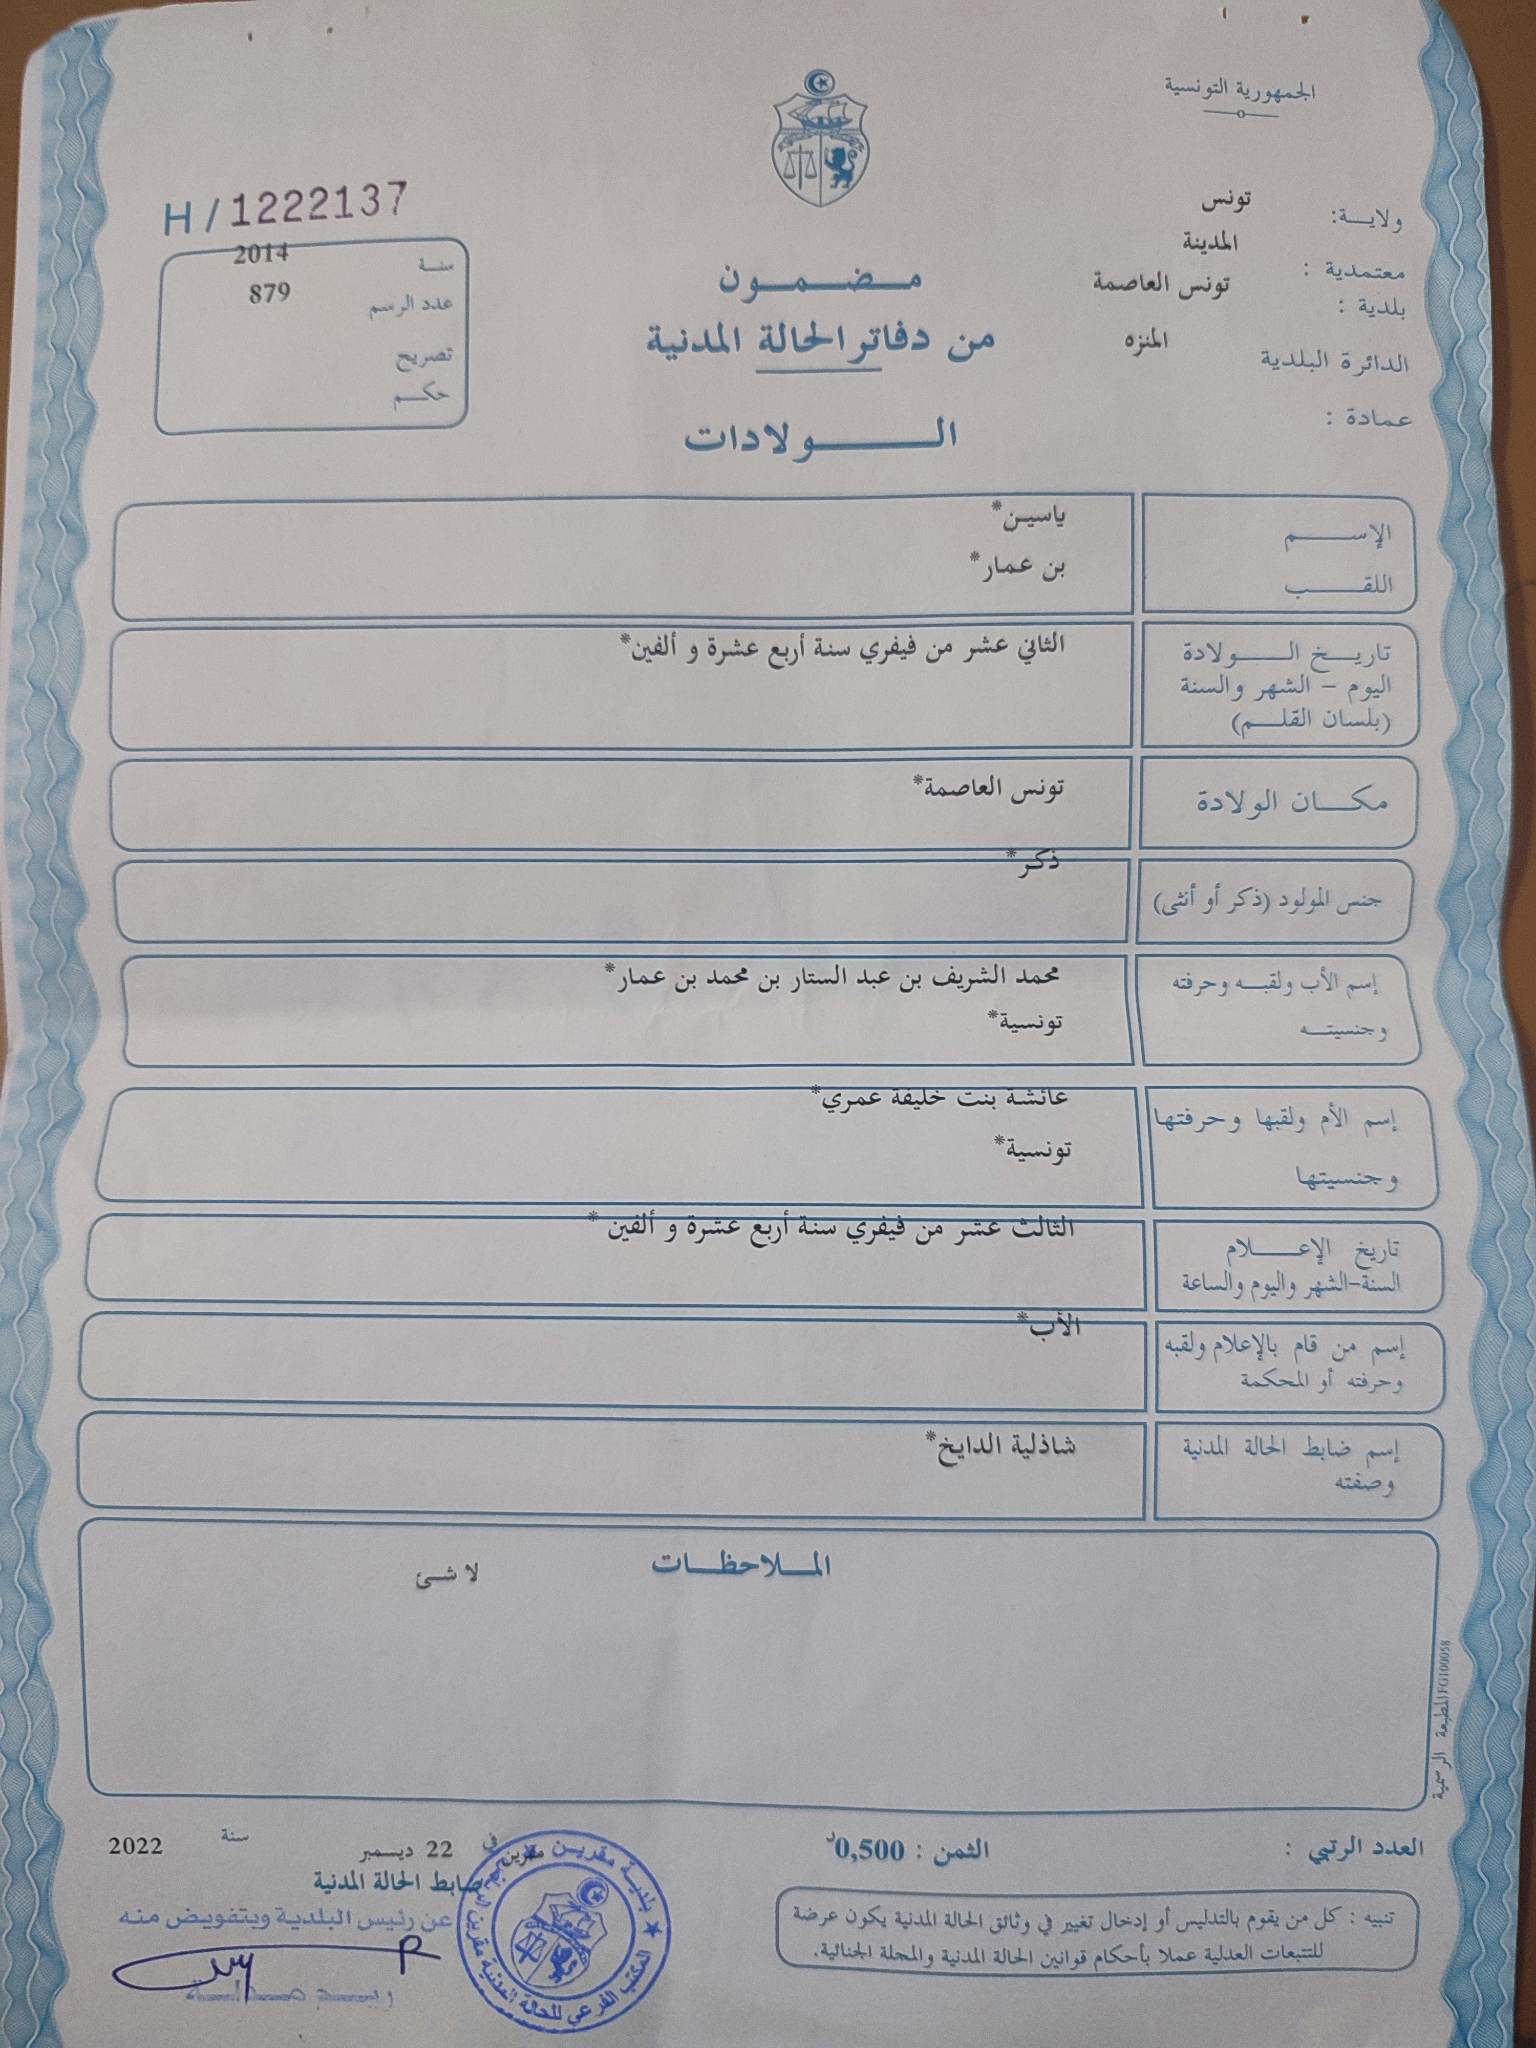 الجمهورية التونسية
ولايــة: تونس
معتمدية : المدينة
بلدية : تونس العاصمة
الدائرة البلدية المنزه
عمادة :
مـضـمـون
من دفاتر الحالة المدنية
الـولادات
H / 1222137
سنـة 2014
عدد الرسم 879
تصريح
حكـم
الإســم ياسين*
اللقـب بن عمار*
تاريـخ الـولادة الثاني عشر من فيفري سنة أربع عشرة و ألفين*
اليوم - الشهر والسنة
(بلسان القلـم)
مكـان الولادة تونس العاصمة*
جنس المولود (ذكر أو أنثى) ذكر*
إسم الأب ولقبـه وحرفته محمد الشريف بن عبد الستار بن محمد بن عمار*
وجنسيتـه تونسية*
إسم الأم ولقبها وحرفتها عائشة بنت خليفة عمري*
وجنسيتها تونسية*
تاريخ الإعـلام الثالث عشر من فيفري سنة أربع عشرة و ألفين *
السنة-الشهر واليوم والساعة
إسم من قام بالإعلام ولقبه الأب*
وحرفته أو المحكمة
إسم ضابط الحالة المدنية شاذلية الدايخ*
وصفته
المـلاحظـات
لا شئ
المطبعة الرسمية FG100058
العدد الرتبي :
الثمن : 0,500د
مقرين في 22 ديسمبر سنة 2022
ضابط الحالة المدنية
عن رئيس البلدية وبتفويض منه
بلديـة مقريـن
المكتب الفرعي للحالة المدنية مقرين
تنبيه : كل من يقوم بالتدليس أو إدخال تغيير في وثائق الحالة المدنية يكون عرضة
للتتبعات العدلية عملا بأحكام قوانين الحالة المدنية والمجلة الجنائية.